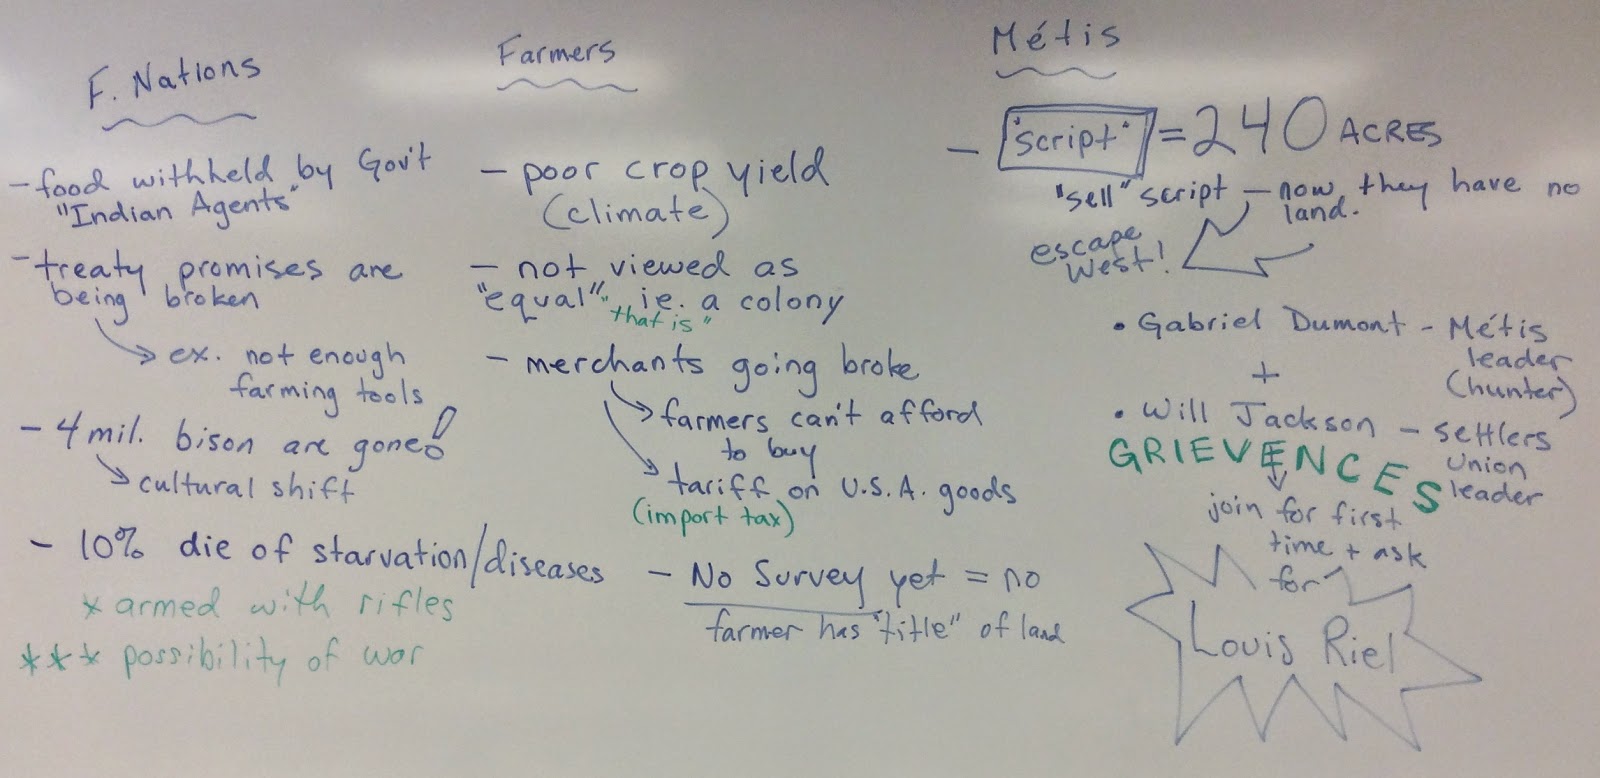 F. Nations
- food withheld by Gov't
"Indian Agents"
- treaty promises are
being broken
ex. not enough
farming tools
- 4 mil. bison are gone!
cultural shift
- 10% die of starvation/diseases
* armed with rifles
*** possibility of war
Farmers
- poor crop yield
(climate)
- not viewed as
"equal" ie. a colony
"that is"
- merchants going broke
farmers can't afford
to buy
tariff on U.S.A. goods
(import tax)
- No Survey yet = no
farmer has "title" of land
Métis
- "script" = 240 ACRES
"sell" script - now they have no
land.
escape
West!
• Gabriel Dumont - Métis
leader
(hunter)
+
• Will Jackson - settlers
union
leader
GRIEVENCES
join for first
time + ask
for
Louis Riel